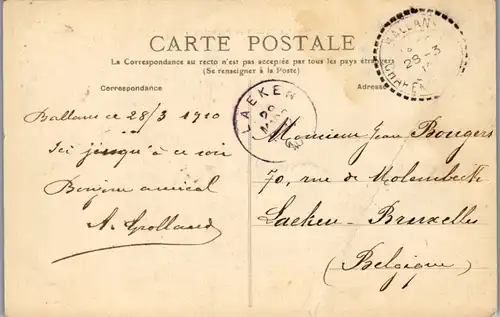 CARTE POSTALE
La Correspondance au recto n'est pas acceptée par tous les pays étrangers
(Se renseigner à la Poste)
Correspondance
Adresse
BALLAN
28-3
LAEKEN
Ballans ce 28/3 1910
Ici jusqu'à ce soir
Bonjour amical
Monsieur Jean Bongers
70, rue de Molenbeek
Laeken-Bruxelles
(Belgique)